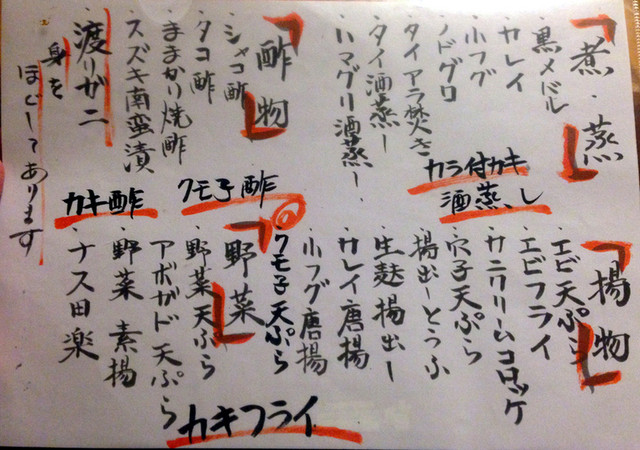 煮・蒸
・黒メバル
・カレイ
・小フグ
・ノドグロ
・タイアラ焚き
・タイ酒蒸し
・ハマグリ酒蒸し
カラ付カキ
酒蒸し
酢物
・シャコ酢
・タコ酢
・ままかり焼酢
・スズキ南蛮漬
・渡りガニ
身を
ほぐしてあります
クモ子酢
カキ酢
揚物
・エビ天ぷら
・エビフライ
・カニクリームコロッケ
・穴子天ぷら
・揚出しとうふ
・生麩揚出し
・カレイ唐揚
・小フグ唐揚
・クモ子天ぷら
野菜
・野菜天ぷら
・アボガド天ぷら
・野菜素揚
・ナス田楽
カキフライ